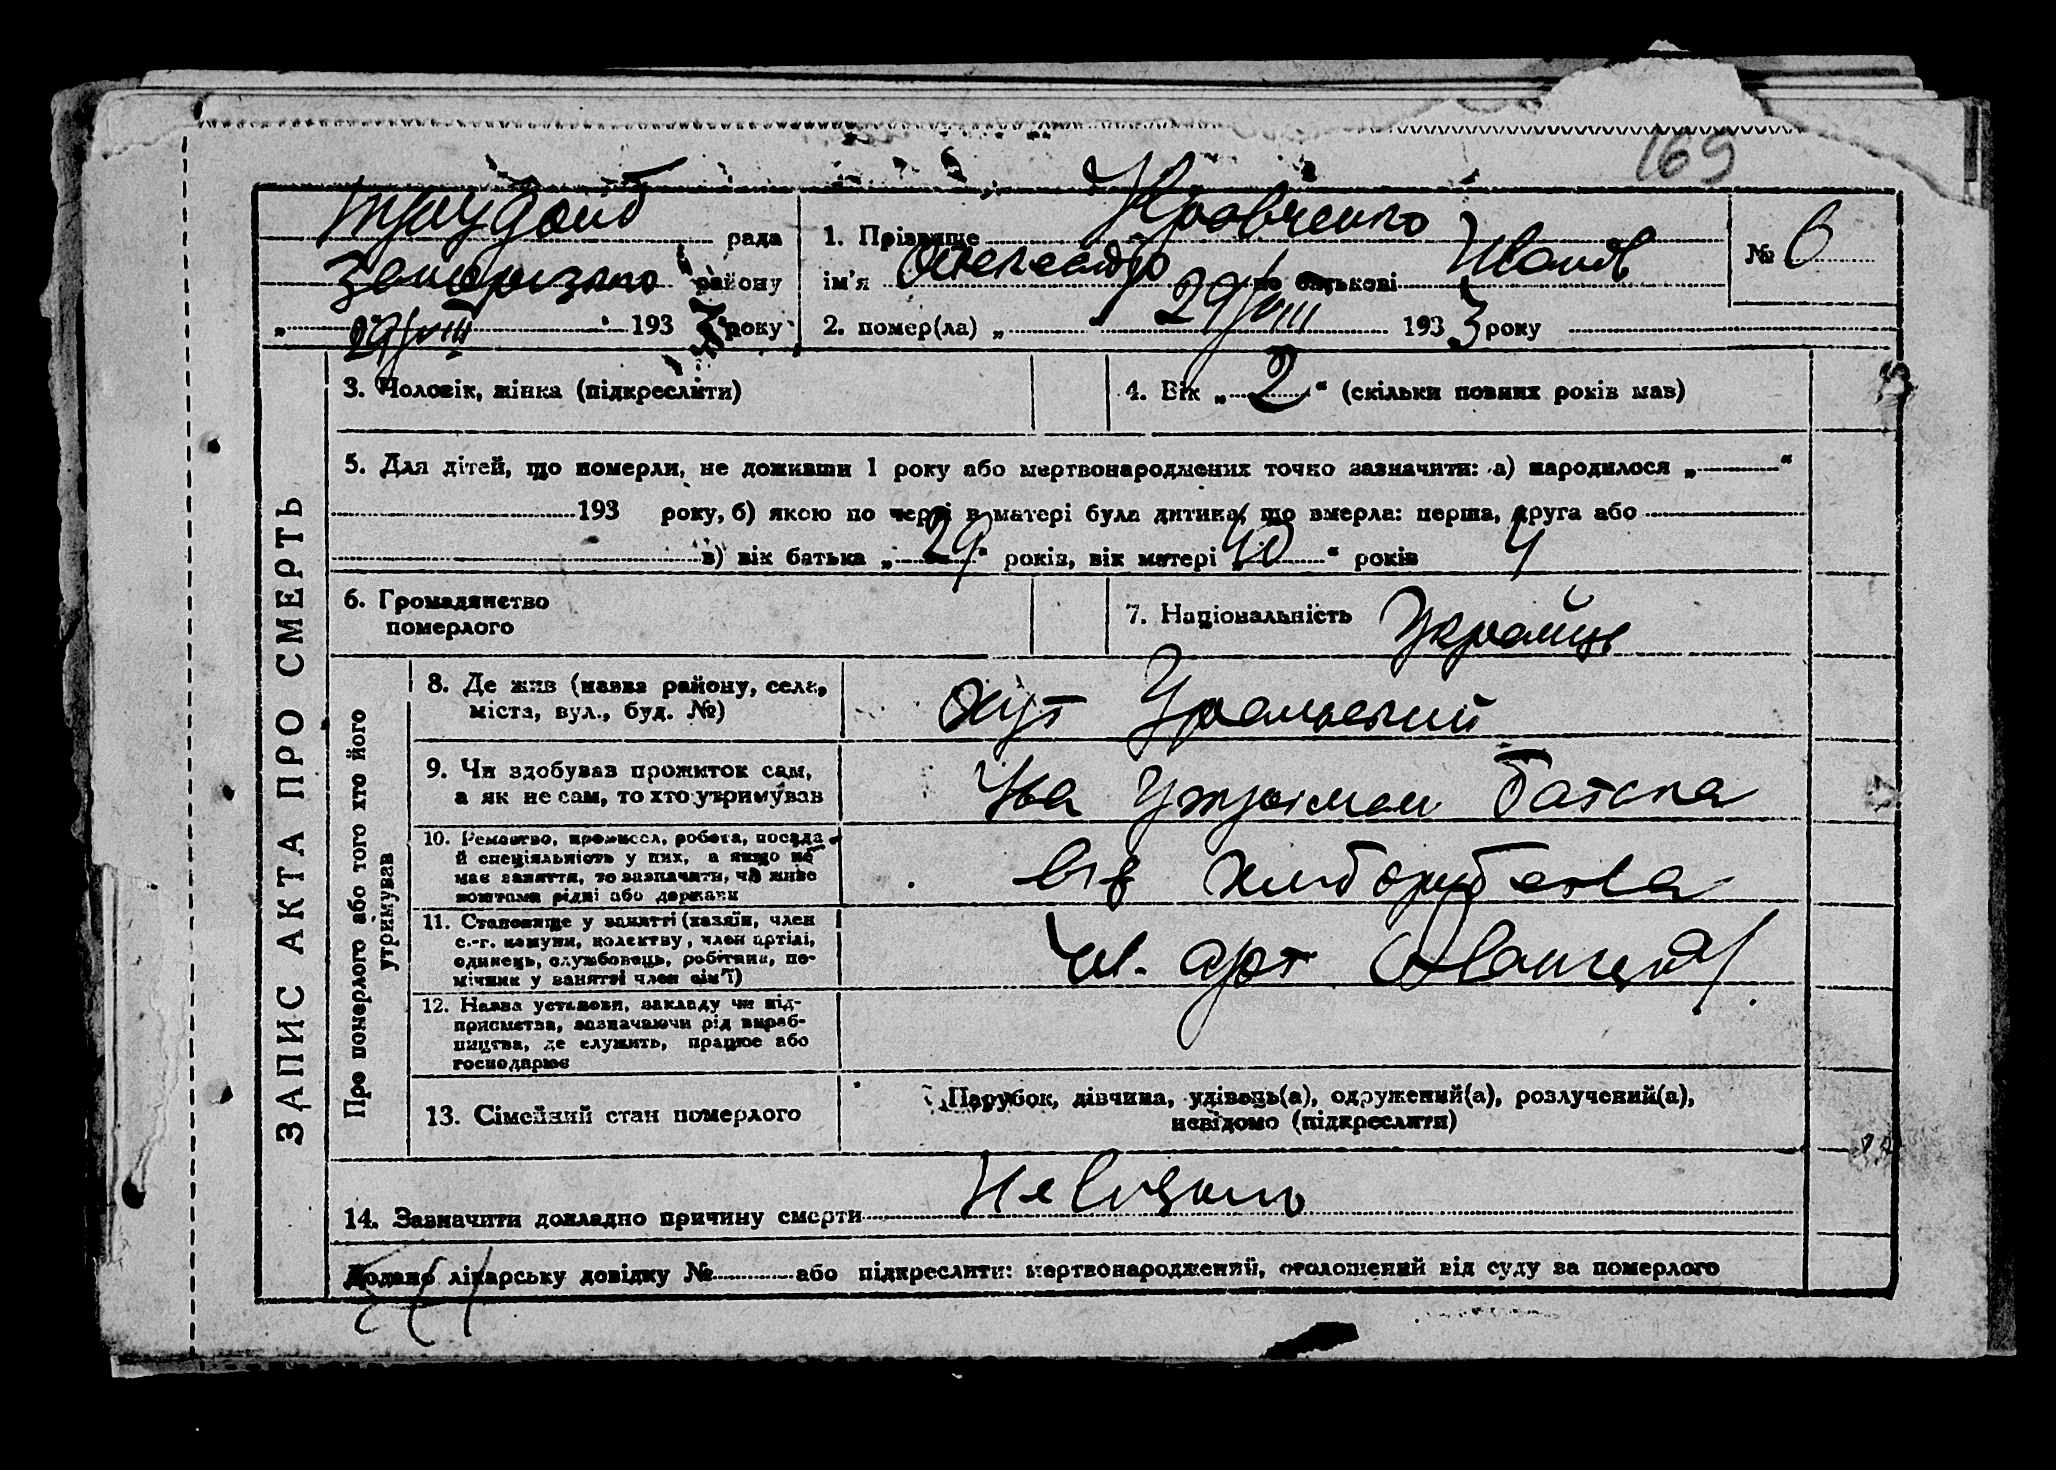 169
рада
1. Прізвище Кравченко
№ 6
району
ім'я Олександр по батькові Іванов
29/VIII 193 3 року
2. помер(ла) „ 29/VIII 193 3 року
ЗАПИС АКТА ПРО СМЕРТЬ
3. Чоловік, жінка (підкреслити)
4. Вік „ 2 “ (скільки повних років мав)
5. Для дітей, що померли, не доживши 1 року або мертвонароджених точно зазначити: а) народилося „ “
193 року, б) якою по черзі в матері була дитина, що вмерла: перша, друга або 4
в) вік батька „ 29 “ років, вік матері „ 40 “ років
6. Громадянство
померлого
7. Національність Україець
Про померлого або того хто його
утримував
8. Де жив (назва району, села,
міста, вул., буд. №)
Хут
9. Чи здобував прожиток сам,
а як не сам, то хто утримував
На утриман батька
10. Ремество, промисел, робота, посада
й спеціяльність у них, а якщо не
має заняття, то зазначити, чи живе
коштами рідні або держави
11. Становище у занятті (хазяїн, член
с.-г. комуни, колективу, член артілі,
одинець, службовець, робітник, по-
мічник у занятті член сім'ї)
чл. арт
12. Назва установи, закладу чи під-
приємства, зазначаючи рід вироб-
ництва, де служить, працює або
господарює
13. Сімейний стан померлого
Парубок, дівчина, удівець(а), одружений(а), розлучений(а),
невідомо (підкреслити)
14. Зазначити докладно причину смерти
Додано лікарську довідку № або підкреслити: мертвонароджений, оголошений від суду за померлого